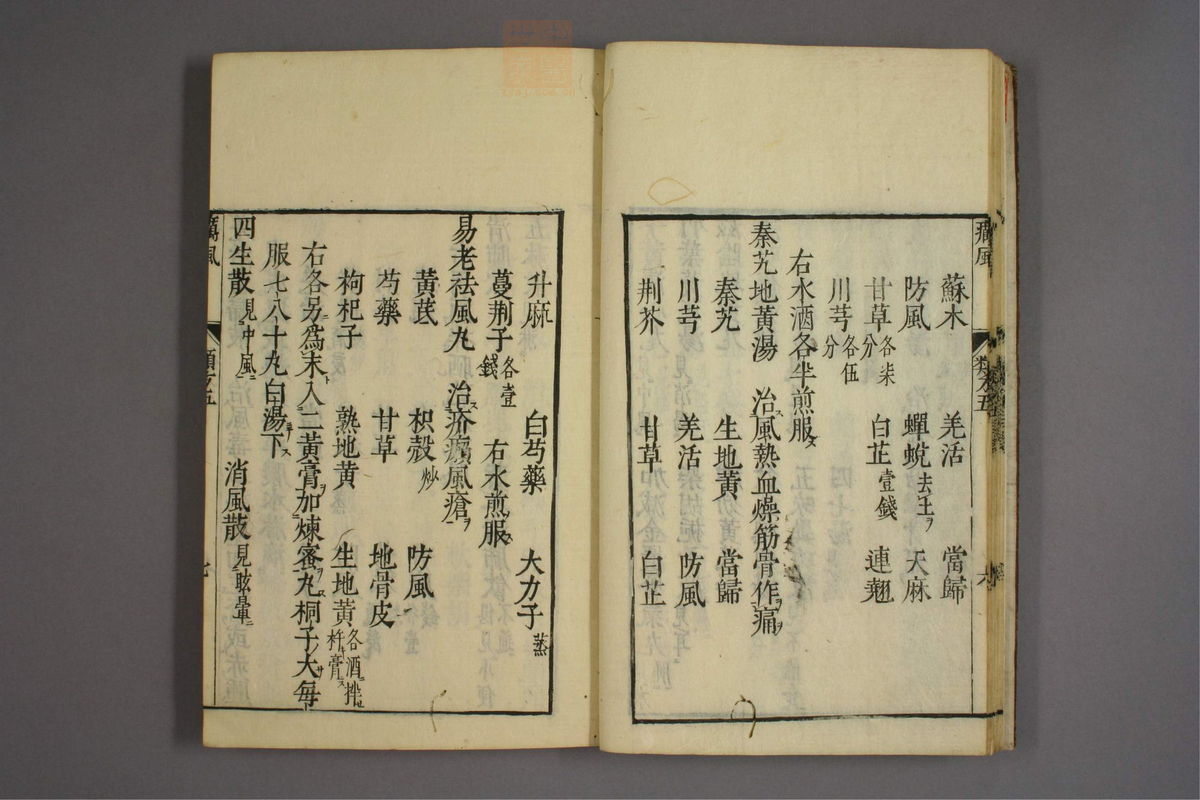 癘風
類方五
六
蘇木 羌活 當歸
防風 蟬蛻去土ヲ 天麻
甘草各柒分 白芷壹錢 連翹
川芎各伍分
右水酒各半煎服ス
秦艽地黃湯 治ス風熱血燥筋骨作ヲ痛
秦艽 生地黃 當歸
川芎 羌活 防風
荆芥 甘草 白芷
升麻 白芍藥 大力子蒸
蔓荆子各壹錢 右水煎服
易老祛風丸 治ス疥癩風瘡ヲ
黃芪 枳殼炒 防風
芍藥 甘草 地骨皮
枸杞子 熟地黃 生地黃各酒拌杵膏
右各另為末入二黃膏加煉蜜丸桐子大每
服七八十丸白湯下
四生散見中風ニ 消風散見眩暈ニ
癘風
類方五
七